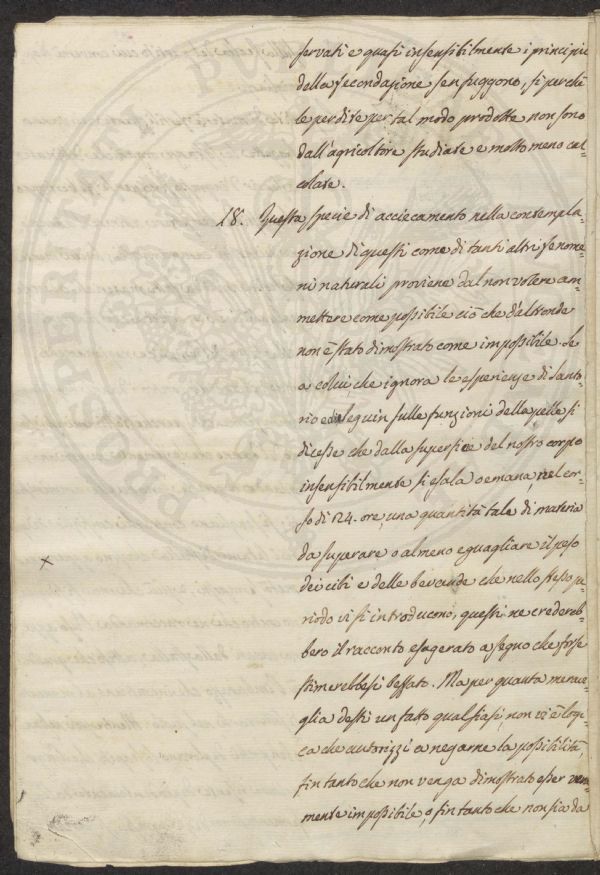 servati e quasi insensibilmente i principii
della fecondazione sen fuggono, si perchè
le perdite per tal modo prodotte non sono
dall'agricoltore studiate e molto meno cal=
colate.
18. Questa specie di acciecamento nella contempla=
zione di questi come di tanti altri fenome=
ni naturali proviene dal non volere am=
mettere come possibile ciò che d'altronde
non è stato dimostrato come impossibile. Se
a colui, che ignora le esperienze di Santo=
rio e di Seguin sulle funzioni della pelle si
dicesse che dalla superficie del nostro corpo
insensibilmente si esala o emana nel cor=
so di 24. ore, una quantità tale di materia
da superare o almeno eguagliare il peso
dei cibi e delle bevande che nello stesso pe=
riodo vi si introducono, questi ne credereb=
bero il racconto esagerato a segno che forse
stimerebbesi beffato. Ma per quanta merave=
glia desti un fatto qualsiasi, non vi è logi=
ca che autorizzi a negarne la possibilità,
fin tanto che non venga dimostrato esser vera=
mente impossibile, o fin tanto che non sia da
x
PROSPERI